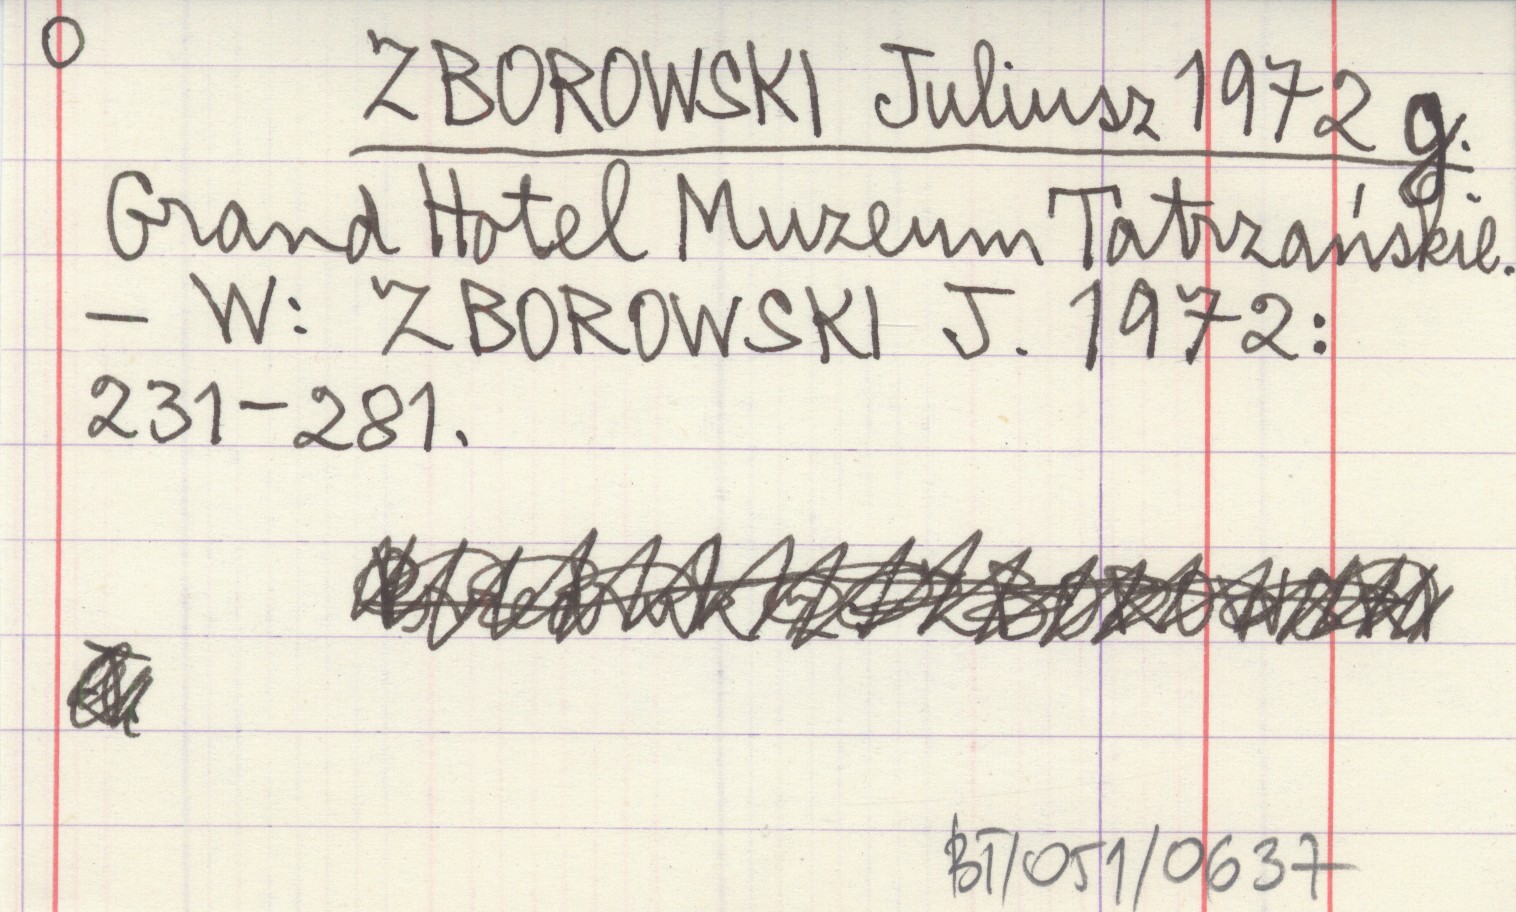 O
ZBOROWSKI Juliusz 1972 g.
Grand Hotel Muzeum Tatrzańskie.
– W: ZBOROWSKI J. 1972:
231–281.
BT/051/0637